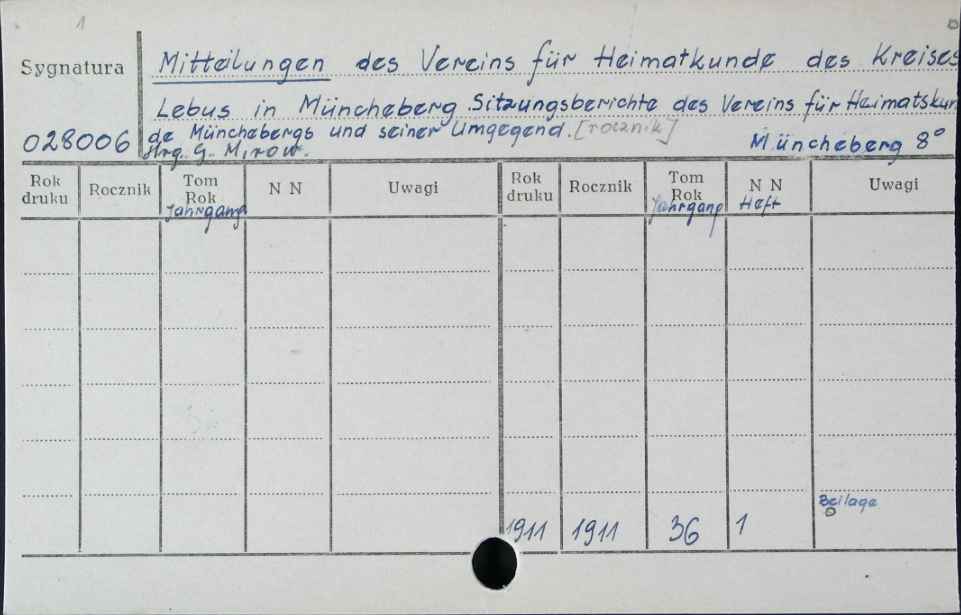 1
Sygnatura
Mitteilungen des Vereins für Heimatkunde des Kreises
Lebus in Müncheberg. Sitzungsberichte des Vereins für Heimatskun
028006
de Münchebergs und seiner Umgegend. [rocznik]
Hrg. G. Mirow.
Müncheberg 8°
Rok druku Rocznik Tom Rok Jahrgang N N Uwagi Rok druku Rocznik Tom Rok Jahrgang N N Heft Uwagi
Beilage
1911 1911 36 1